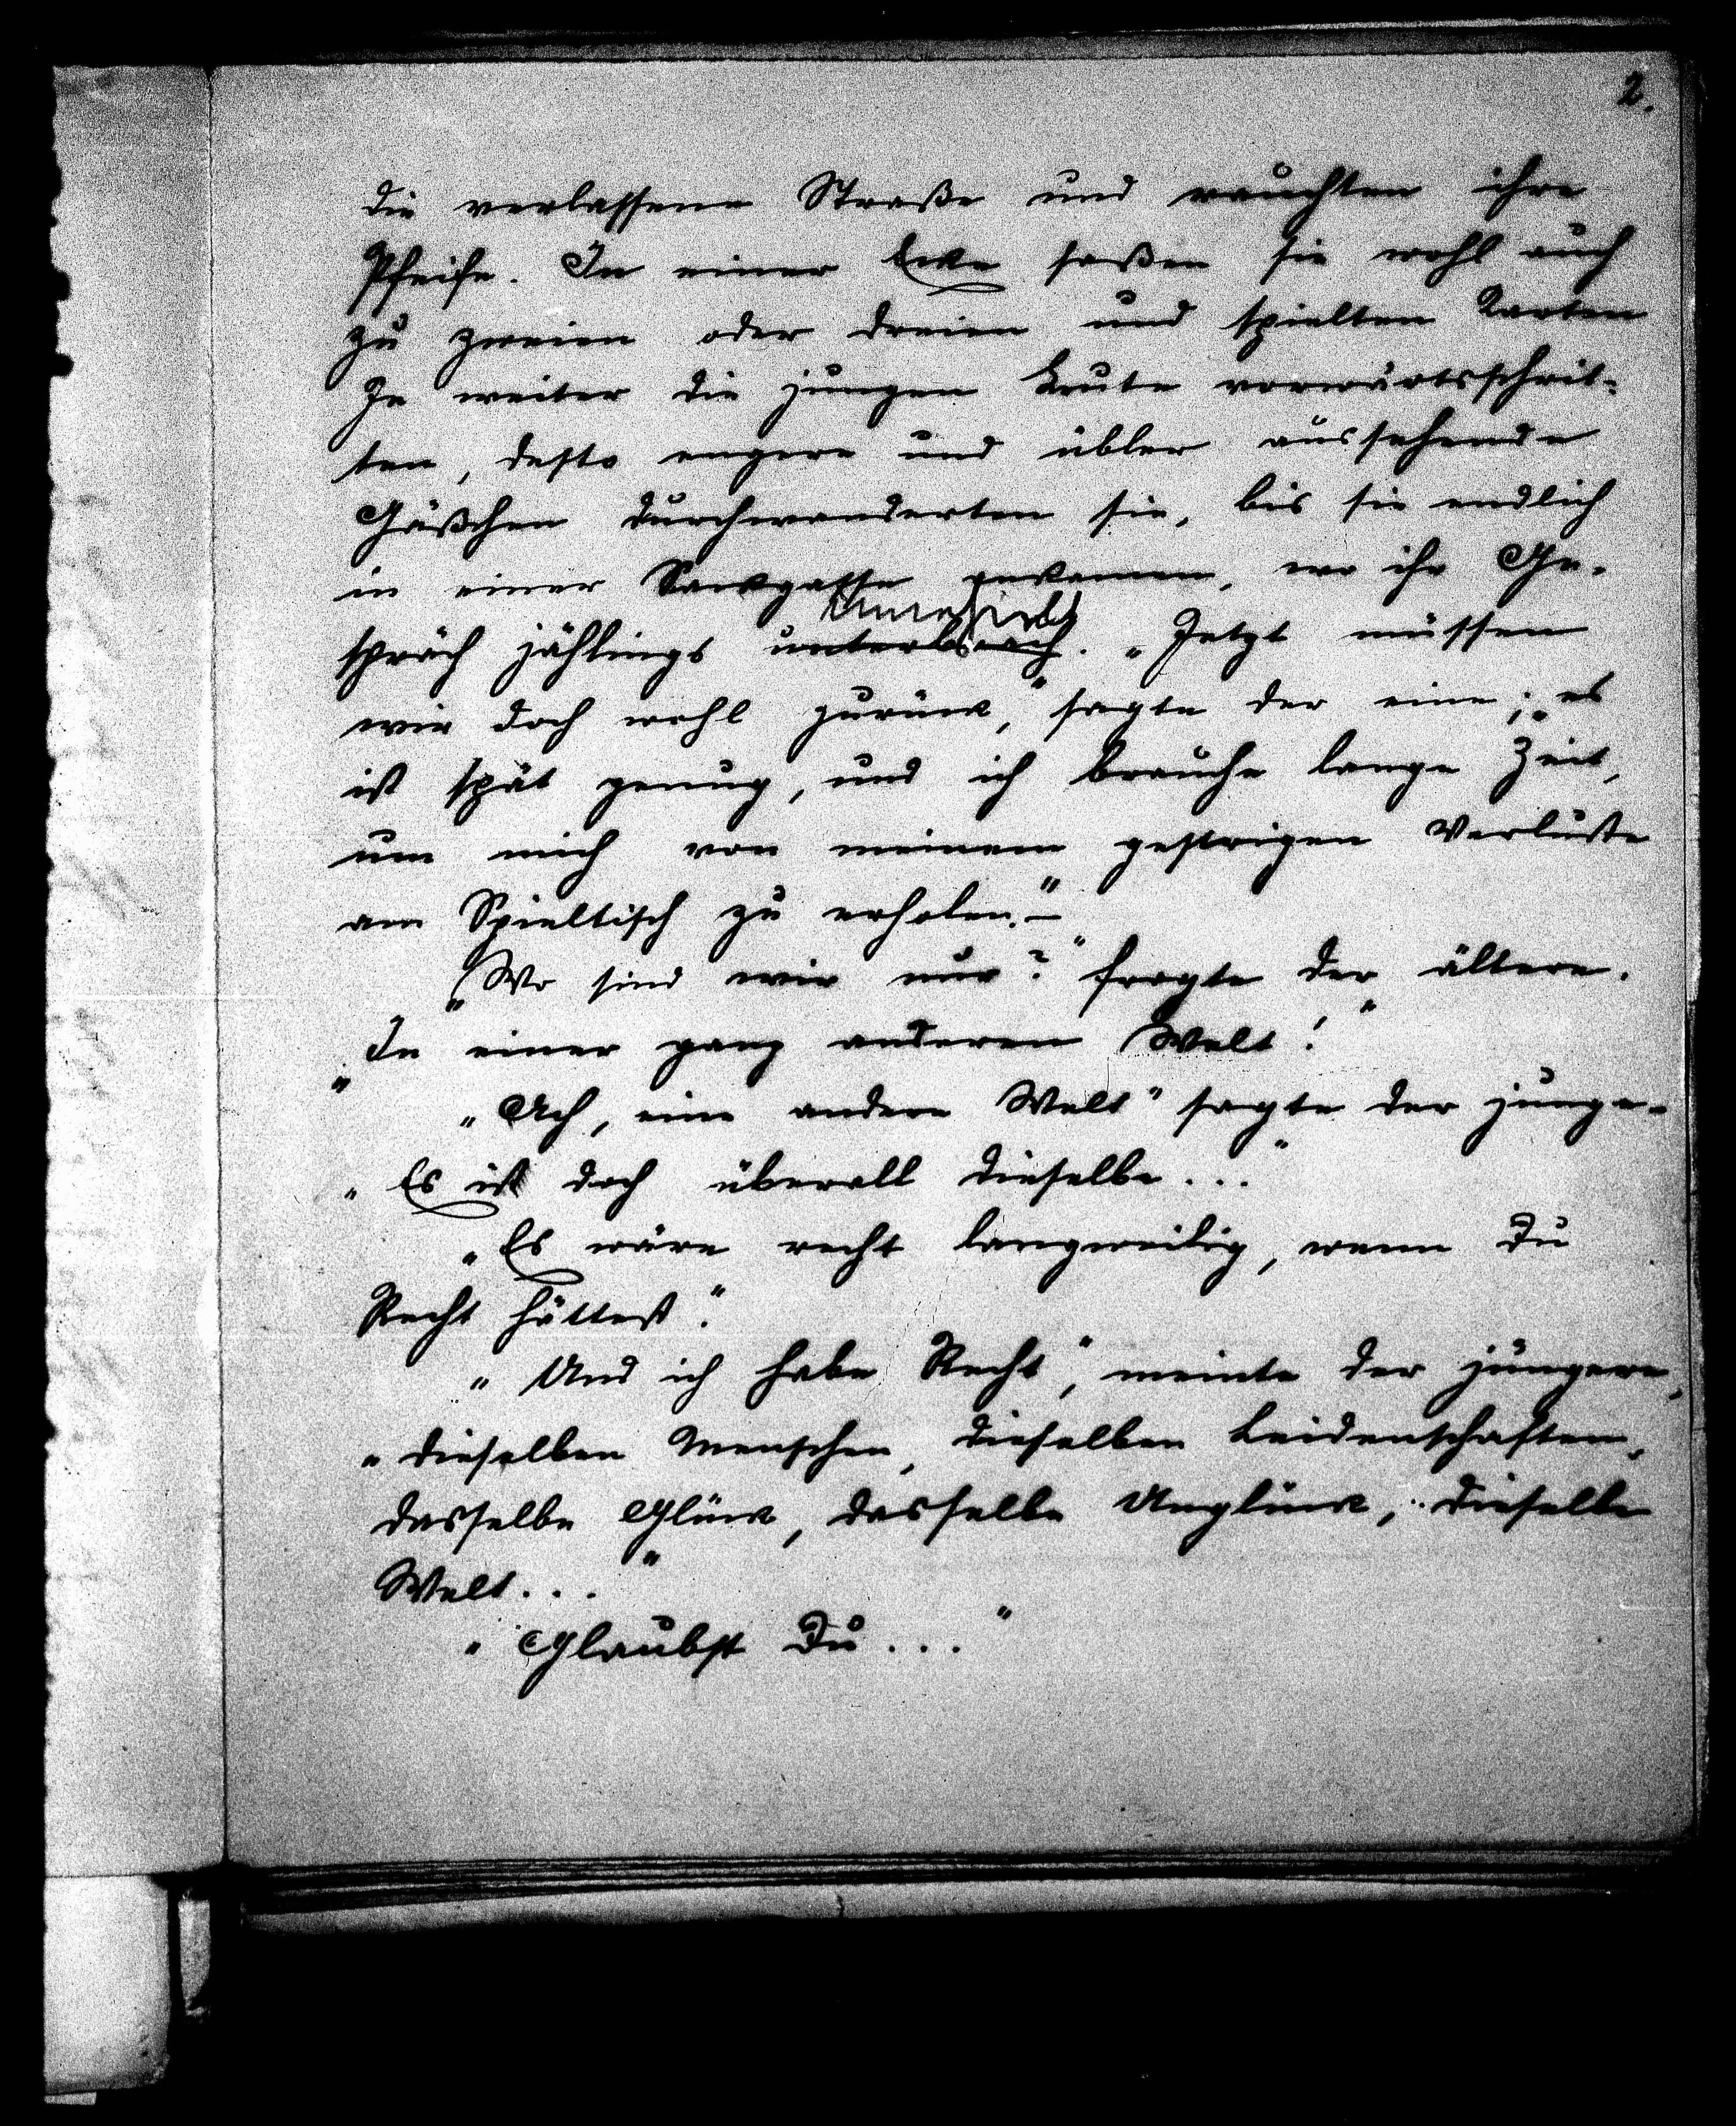 2.
die verlassene Straße und rauchten ihre
Pfeife. In einer Ecke saßen sie wohl auch
zu zweien oder dreien und spielten Karten
Je weiter die jungen Leute vorwärtsschrit-
ten, desto engere und übler aussehende
Gäßchen durchwanderten sie, bis sie endlich
in einer Sackgasse
wo ihr Ge-
spräch jählings unterbrach. „Jetzt müssen
wir doch wohl zurück,“ sagte der eine; „es
ist spät genug, und ich brauche lange Zeit,
um mich von meinem gestrigen Verluste
am Spieltisch zu erholen.–“
„Wo sind wir nur?“ fragte der ältere.
„In einer ganz anderen Welt!“
„Ach, eine andere Welt“ sagte der junge-
„Es ist doch überall dieselbe...“
„Es wäre recht langweilig, wenn Du
Recht hättest.“
„Und ich habe Recht,“ meinte der jüngere,
„dieselben Menschen, dieselben Leidenschaften,
dasselbe Glück, dasselbe Unglück, dieselbe
Welt...“
„Glaubst Du...“